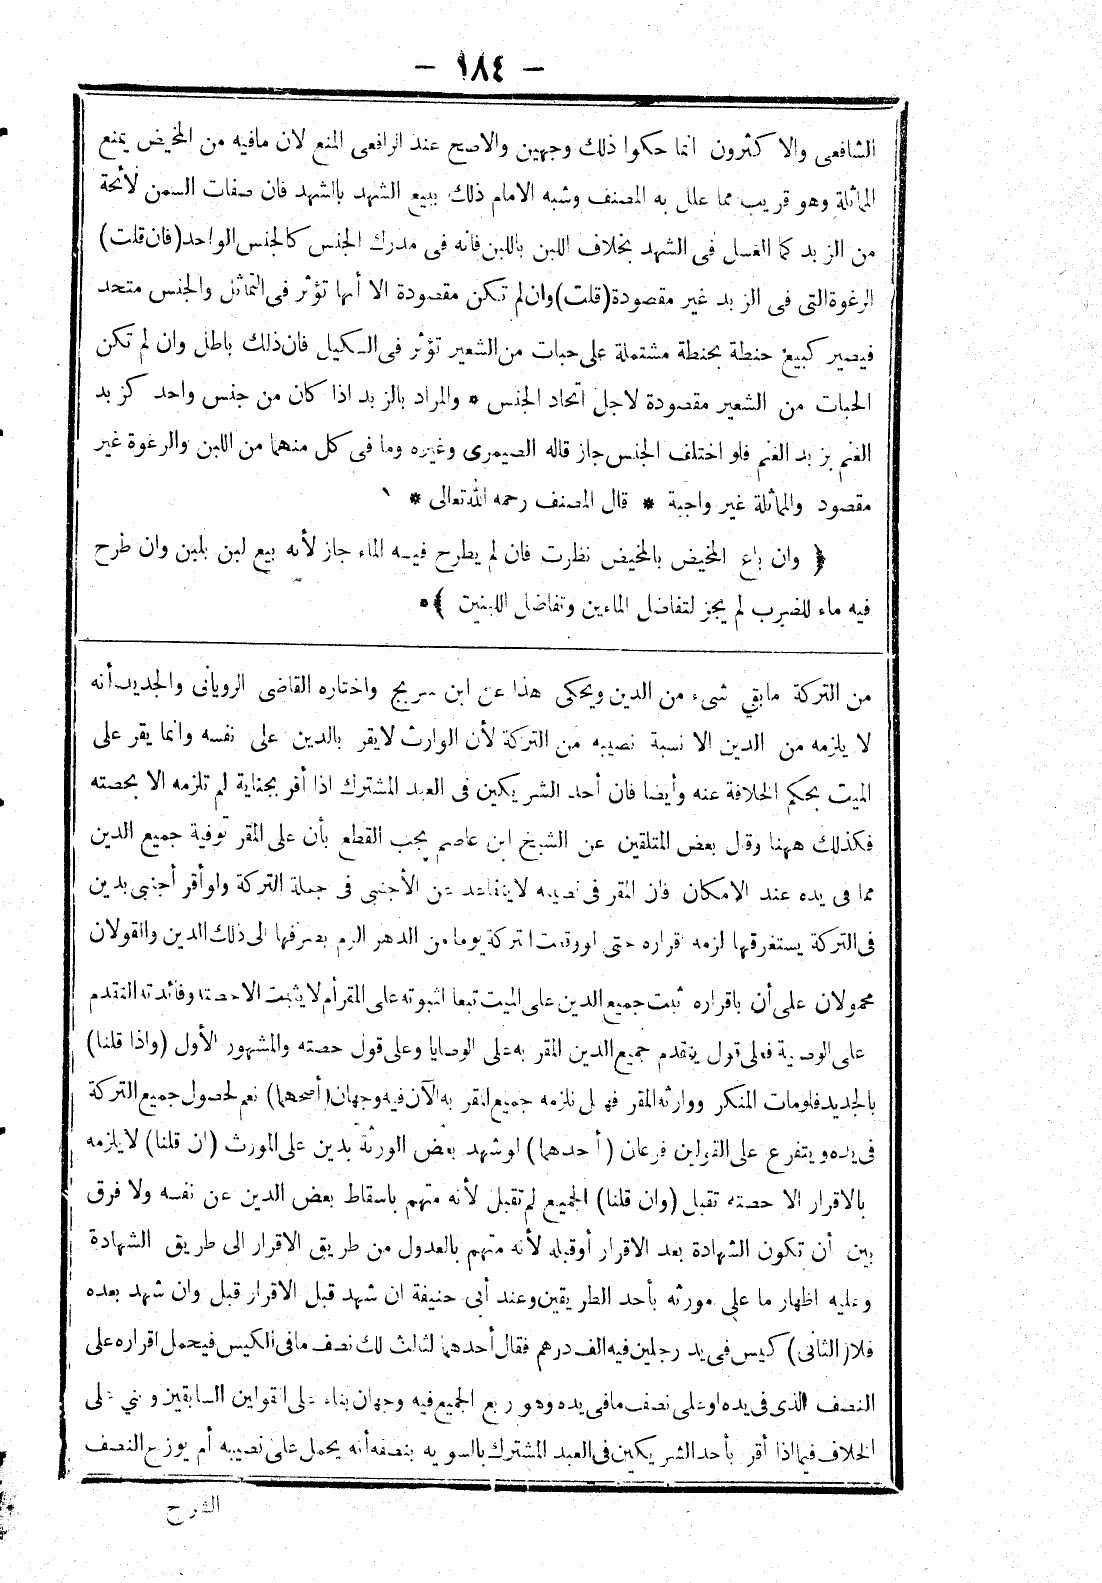 — ١٨٤ —
الشافعى والاكثرون انما حكوا ذلك وجهين والاصح عند الرافعى المنع لان مافيه من المخيض يمنع
المماثلة وهو قريب مما علل به المصنف وشبه الامام ذلك ببيع الشهد بالشهد فان صفات السمن لأئحة
من الزبد كما العسل فى الشهد بخلاف اللبن باللبن فانه فى مدرك الجنس كالجنس الواحد (فان قلت)
الرغوة التى فى الزبد غير مقصودة (قلت) وان لم تكن مقصودة الا أنها تؤثر فى التماثل والجنس متحد
فيصير كبيع حنطة بحنطة مشتملة على حبات من الشعير تؤثر فى المكيال فان ذلك باطل وان لم تكن
الحبات من الشعير مقصودة لاجل اتحاد الجنس * والمراد بالزبد اذا كان من جنس واحد كزبد
الغنم بزبد الغنم فلو اختلف الجنس جاز قاله الصيمرى وغيره وما فى كل منهما من اللبن والرغوة غير
مقصود والمماثلة غير واجبة * قال المصنف رحمه الله تعالى *
﴿ وان باع المخيض بالمخيض نظرت فان لم يطرح فيه الماء جاز لأنه بيع لبن بلبن وان طرح
فيه ماء للضرب لم يجز لتفاضل الماءين وتفاضل اللبنين ﴾*
من التركة مابقي شىء من الدين ويحكى هذا عن ابن سريج واختاره القاضى الرويانى والجديد أنه
لا يلزمه من الدين الا نسبة نصيبه من التركة لأن الوارث لايقر بالدين على نفسه وانما يقر على
الميت بحكم الخلافة عنه وأيضا فان أحد الشريكين فى العبد المشترك اذا أقر بجناية لم تلزمه الا بحصته
فكذلك ههنا وقال بعض المتلقين عن الشيخ ابن عاصم يجب القطع بأن على المقر توفية جميع الدين
مما فى يده عند الامكان فان المقر فى نصيبه لايتقاعد عن الأجنبى فى جملة التركة ولو أقر أجنبى بدين
فى التركة يستغرقها لزمه اقراره حتى لو وقعت التركة يوما من الدهر الزم بصرفها الى ذلك الدين والقولان
محمولان على أن باقراره ثبت جميع الدين على الميت تبعا لثبوته على المقر أم لا يثبت الا حصته وفائدته التقدم
على الوصية فعلى قول يتقدم جميع الدين المقر به على الوصايا وعلى قول حصته والمشهور الأول (واذا قلنا)
بالجديد فلو مات المنكر ووارثه المقر فهل تلزمه جميع المقر به الآن فيه وجهان (أصحهما) نعم لحصول جميع التركة
فى يده ويتفرع على القولين فرعان (أحدهما) لو شهد بعض الورثة بدين على المورث (ان قلنا) لايلزمه
بالاقرار الا حصته تقبل (وان قلنا) الجميع لم تقبل لأنه متهم باسقاط بعض الدين عن نفسه ولا فرق
بين أن تكون الشهادة بعد الاقرار أو قبله لأنه متهم بالعدول من طريق الاقرار الى طريق الشهادة
وعليه اظهار ما على مورثه بأحد الطريقين وعند أبى حنيفة ان شهد قبل الاقرار قبل وان شهد بعده
فلا (الثانى) كيس فى يد رجلين فيه الف درهم فقال أحدهما لثالث لك نصف مافى الكيس فيحمل اقراره على
النصف الذى فى يده او على نصف مافى يده وهو ربع الجميع فيه وجهان بناء على القولين السابقين وبني على
الخلاف فيما اذا أقر بأحد الشريكين فى العبد المشترك بالسوية بنصفه أنه يحمل على نصيبه أم يوزع النصف
الشرح